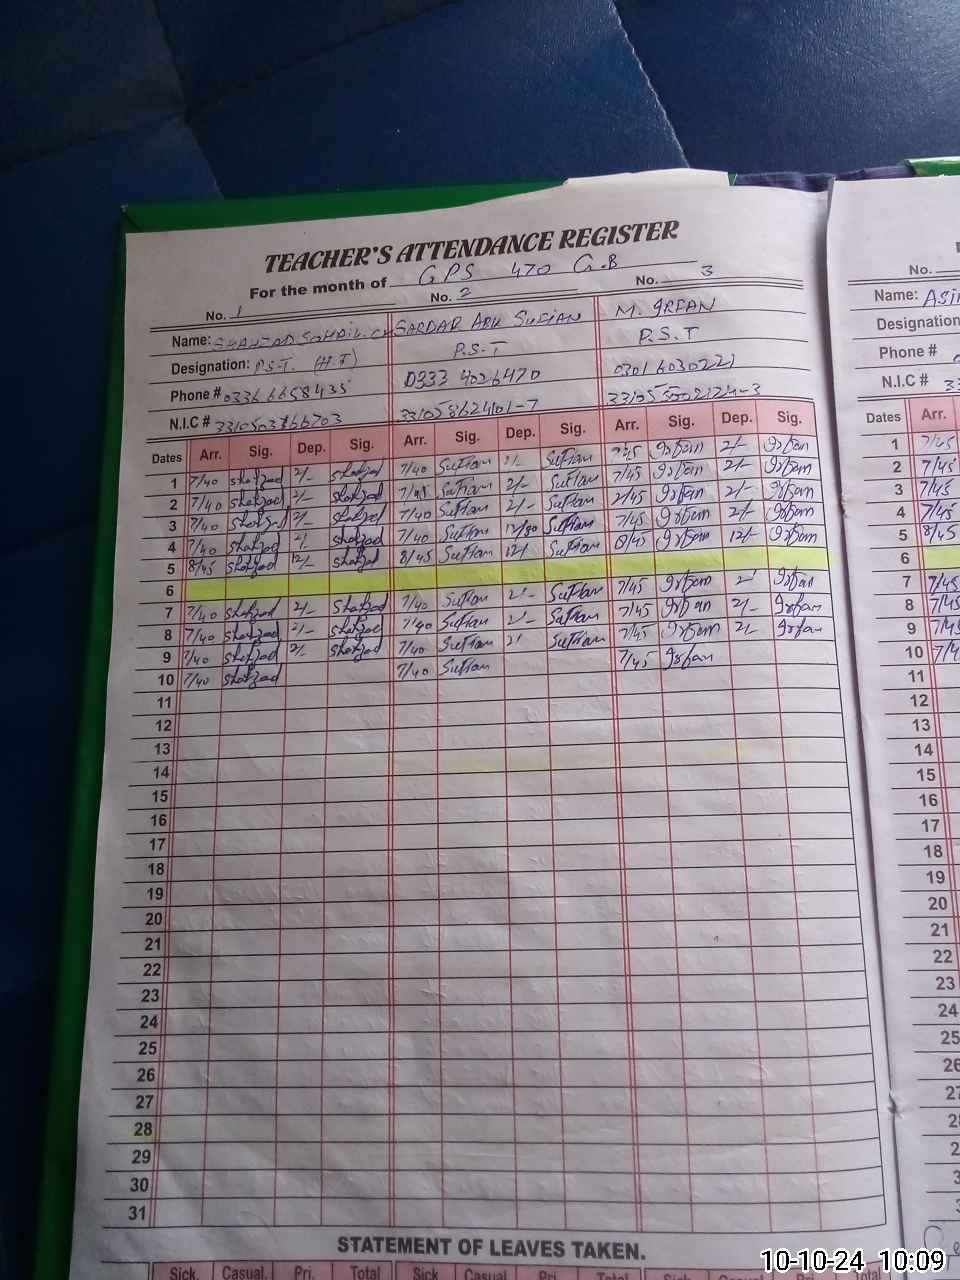 TEACHER'S ATTENDANCE REGISTER
For the month of GPS 470 G.B
No. 1 No. 2 No. 3
Name: SARDAR ABU SUFIAN M. IRFAN
Designation: P.S.T. (H.T) P.S.T P.S.T
Phone # 0336 6658435 0333 4026470 0301 6030221
N.I.C #
Dates Arr. Sig. Dep. Sig. Arr. Sig. Dep. Sig. Arr. Sig. Dep. Sig.
1 7/40 Shahzad 2/- Shahzad 7/40 Sufian 2/- Sufian 7/45 Irfan 2/- Irfan
2 7/40 Shahzad 2/- Shahzad Sufian 2/- Sufian 7/45 Irfan 2/- Irfan
3 7/40 Shahzad 2/- Shahzad 7/40 Sufian 2/- Sufian 7/45 Irfan 2/- Irfan
4 7/40 Shahzad 2/- Shahzad 7/40 Sufian Sufian 7/45 Irfan 2/- Irfan
5 8/45 Shahzad 12/- Shahzad 8/45 Sufian 12/- Sufian 8/45 Irfan 12/- Irfan
6
7 7/40 Shahzad 2/- Shahzad 7/40 Sufian 2/- Sufian 7/45 Irfan 2/- Irfan
8 7/40 Shahzad 2/- Shahzad 7/40 Sufian 2/- Sufian 7/45 Irfan 2/- Irfan
9 7/40 Shahzad 2/- Shahzad 7/40 Sufian 2/- Sufian 7/45 Irfan 2/- Irfan
10 7/40 Shahzad 7/40 Sufian 7/45 Irfan
11
12
13
14
15
16
17
18
19
20
21
22
23
24
25
26
27
28
29
30
31
STATEMENT OF LEAVES TAKEN.
Sick Casual. Pri. Total Sick Casual. Pri. Total Sick Casual. Pri. Total
No.
Name:
Designation
Phone #
N.I.C #
Dates Arr.
1 7/45
2 7/45
3 7/45
4 7/45
5 8/45
6
7 7/45
8 7/45
9 7/45
10
11
12
13
14
15
16
17
18
19
20
21
22
23
24
25
26
10-10-24 10:09